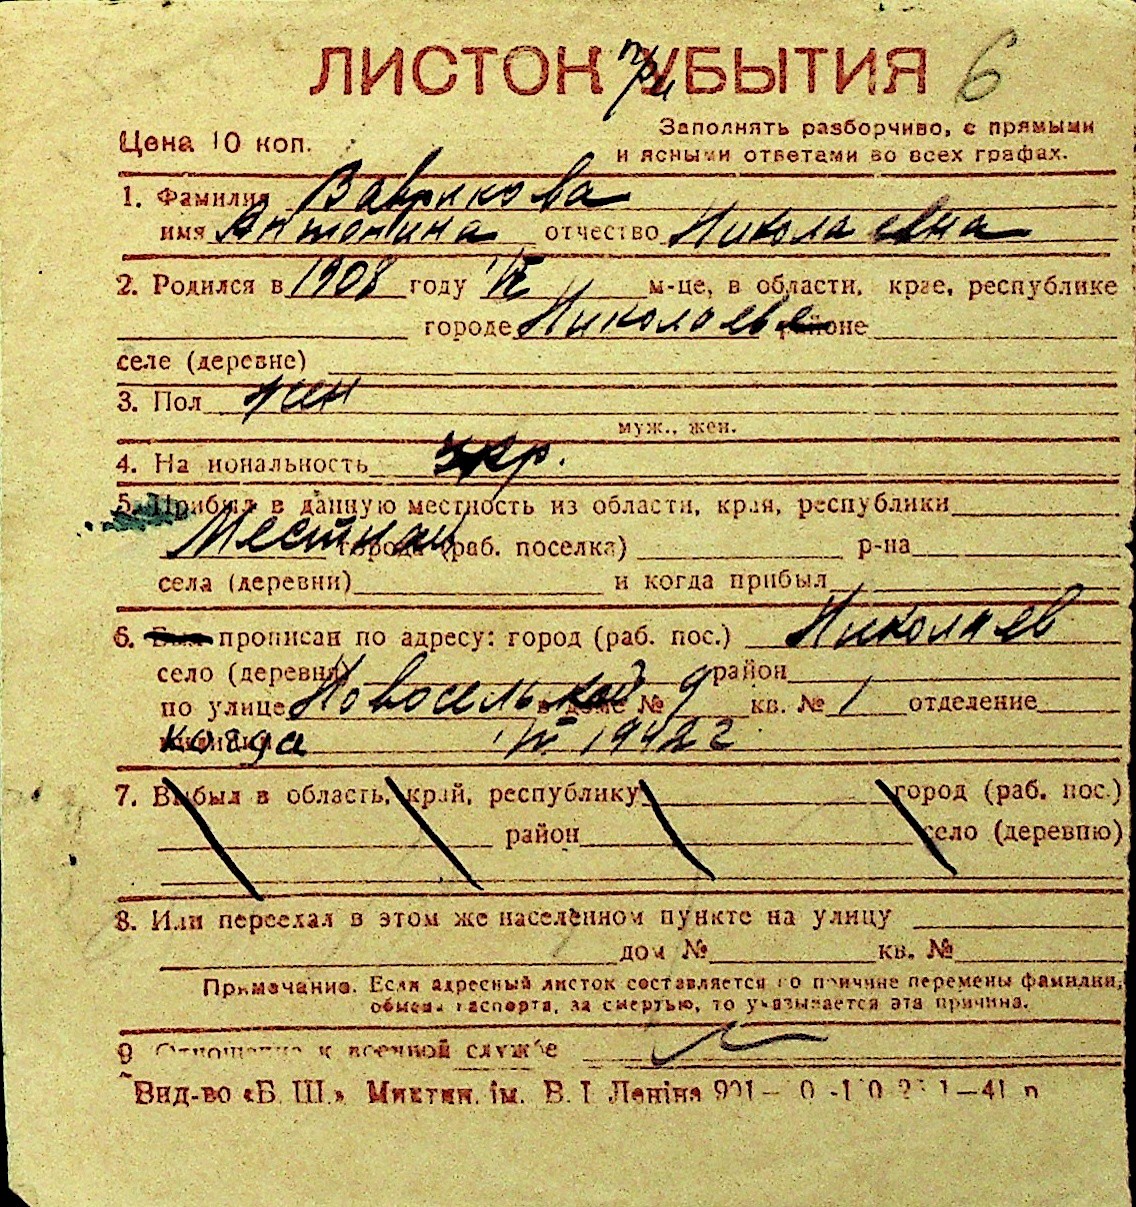 ЛИСТОК при УБЫТИЯ 6
Цена 10 коп.
Заполнять разборчиво, с прямыми
и ясными ответами во всех графах.
1. Фамилия Ваврикова
имя Антонина отчество Николаевна
2. Родился в 1908 году VI м-це, в области, крае, республике
городе Николаеве районе
селе (деревне)
3. Пол жен
муж., жен.
4. На иональность укр.
5. Прибыл в данную местность из области, края, республики
Местная города (раб. поселка) р-на
села (деревни) и когда прибыл
6. Был прописан по адресу: город (раб. пос.) Николаев
село (деревня) район
по улице Новосельской в доме № 9 кв. № 1 отделение
когда 1942 г
7. Выбыл в область, край, республику город (раб. пос.)
район село (деревню)
8. Или переехал в этом же населённом пункте на улицу
дом № кв. №
Примечание. Если адресный листок составляется по причине перемены фамилии,
обмена паспорта, за смертью, то указывается эта причина.
9 Отношение к военной службе
Вид-во «Б. Ш.» Миктип. ім. В. І Леніна